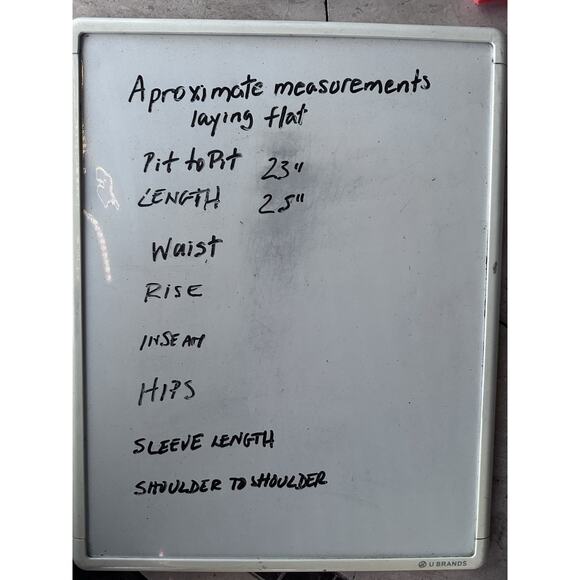 Aproximate measurements
laying flat
Pit to Pit 23"
LENGTH 25"
Waist
RISE
INSEAM
HIPS
SLEEVE LENGTH
SHOULDER TO SHOULDER
U BRANDS